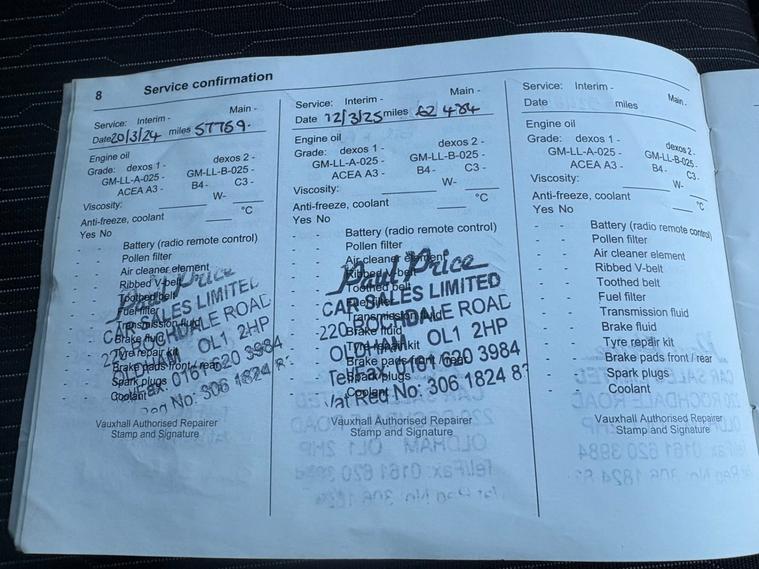 8 Service confirmation
Service: Interim - Main -
Date 20/3/24 miles 57769.
Engine oil
Grade: dexos 1 - dexos 2 -
GM-LL-A-025 - GM-LL-B-025 -
ACEA A3 - B4 - C3 -
Viscosity: W- °C
Anti-freeze, coolant
Yes No
- - Battery (radio remote control)
- - Pollen filter
- - Air cleaner element
- - Ribbed V-belt
- - Toothed belt
- - Fuel filter
- - Transmission fluid
- - Brake fluid
- - Tyre repair kit
- - Brake pads front / rear
- - Spark plugs
- - Coolant
Paul Price
CAR SALES LIMITED
220 ROCHDALE ROAD
OLDHAM OL1 2HP
Tel/Fax: 0161 620 3984
Vat Reg No: 306 1824
Vauxhall Authorised Repairer
Stamp and Signature
Service: Interim - Main -
Date 12/3/25 miles 62 484
Engine oil
Grade: dexos 1 - dexos 2 -
GM-LL-A-025 - GM-LL-B-025 -
ACEA A3 - B4 - C3 -
Viscosity: W- °C
Anti-freeze, coolant
Yes No
- - Battery (radio remote control)
- - Pollen filter
- - Air cleaner element
- - Ribbed V-belt
- - Toothed belt
- - Fuel filter
- - Transmission fluid
- - Brake fluid
- - Tyre repair kit
- - Brake pads front / rear
- - Spark plugs
- - Coolant
Paul Price
CAR SALES LIMITED
220 ROCHDALE ROAD
OLDHAM OL1 2HP
Tel/Fax: 0161 620 3984
Vat Reg No: 306 1824
Vauxhall Authorised Repairer
Stamp and Signature
Service: Interim - Main -
Date miles
Engine oil
Grade: dexos 1 - dexos 2 -
GM-LL-A-025 - GM-LL-B-025 -
ACEA A3 - B4 - C3 -
Viscosity: W- °C
Anti-freeze, coolant
Yes No
- - Battery (radio remote control)
- - Pollen filter
- - Air cleaner element
- - Ribbed V-belt
- - Toothed belt
- - Fuel filter
- - Transmission fluid
- - Brake fluid
- - Tyre repair kit
- - Brake pads front / rear
- - Spark plugs
- - Coolant
Vauxhall Authorised Repairer
Stamp and Signature